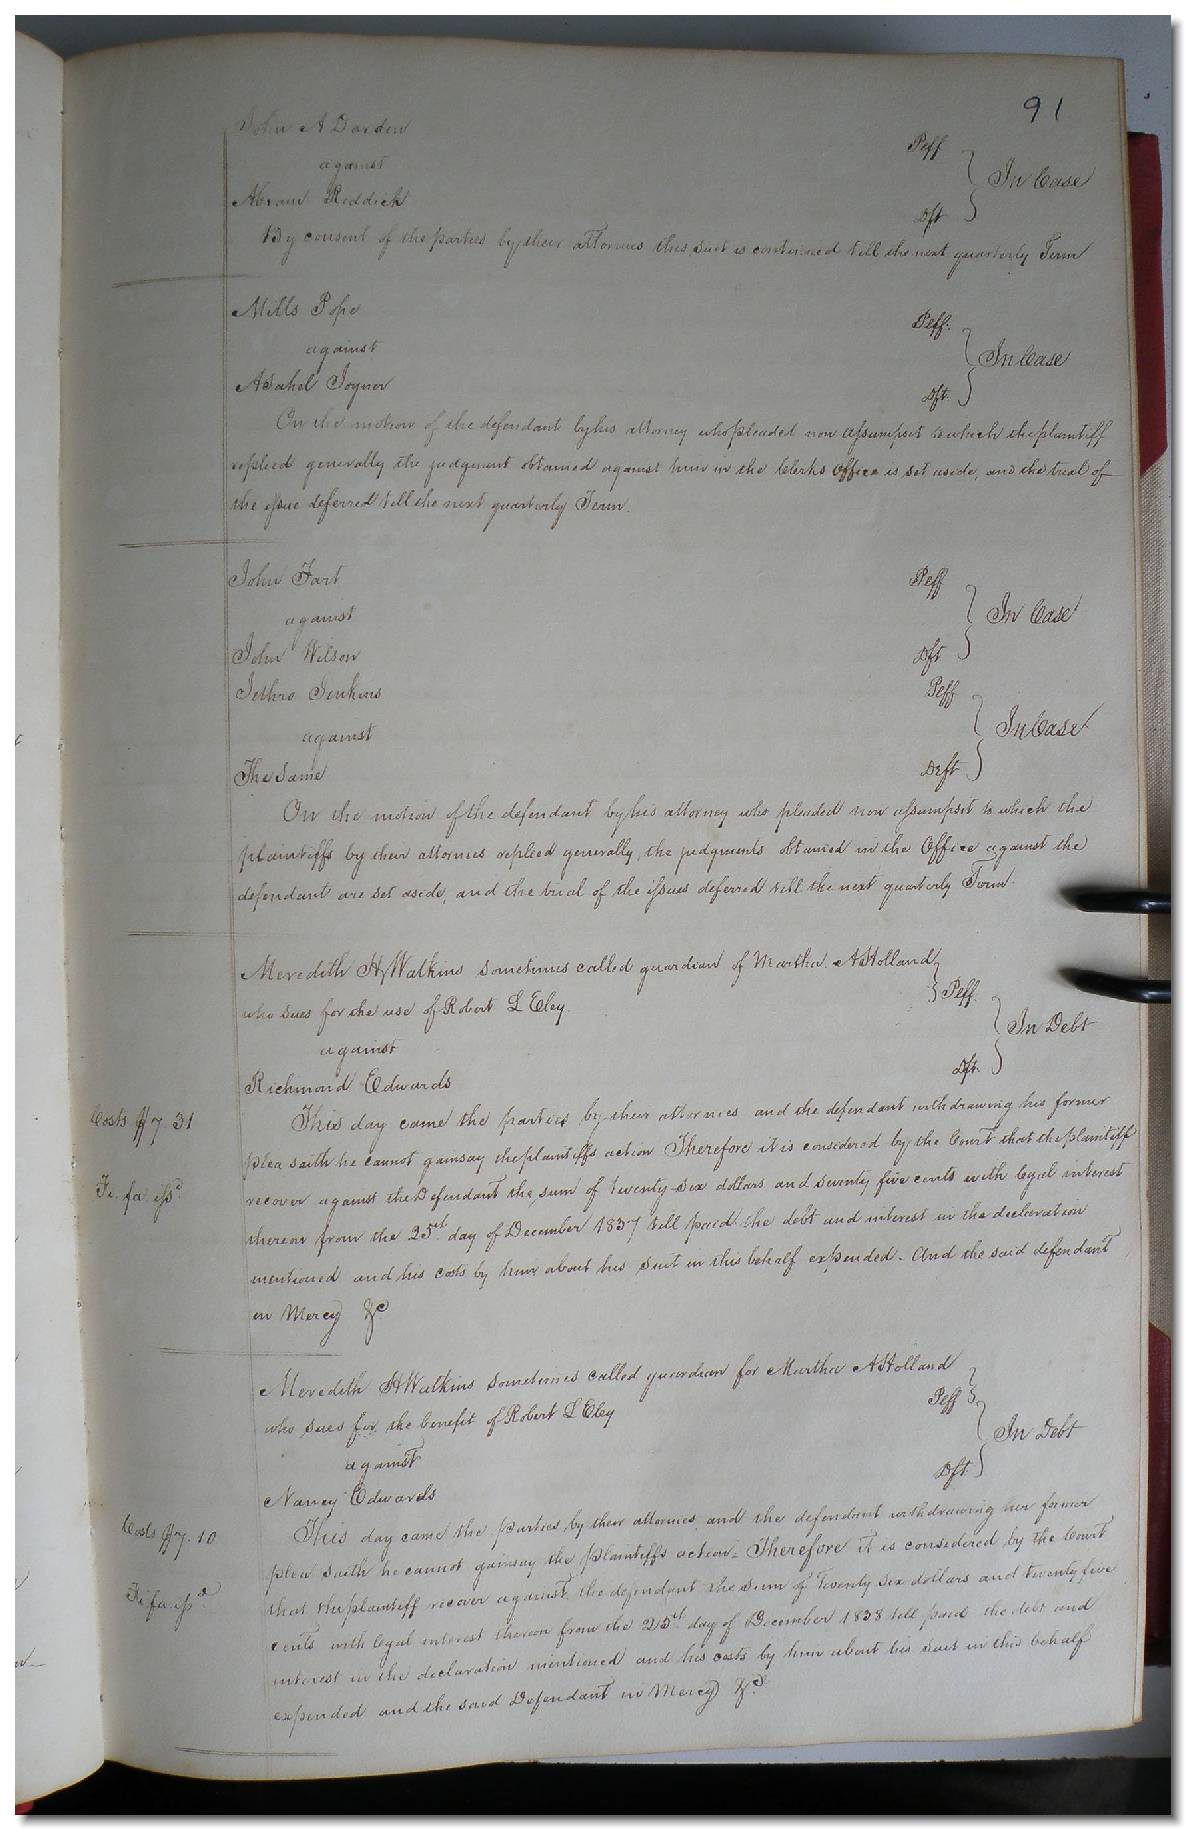 91
John A Darden Plff
against } In Case
Abram Riddick Dft
By consent of the parties by their attornies this suit is continued till the next quarterly Term
Mills Pope Plff.
against } In Case
Asahel Joyner Dft.
On the motion of the defendant by his attorney who pleaded non assumpsit to which the plaintiff
replied generally the judgment obtained against him in the Clerks Office is set aside, and the trial of
the issue deferred till the next quarterly Term.
John Fart Plff
against } In Case
John Wilson Dft
Jethro Jenkins Plff
against } In Case
The Same Deft
On the motion of the defendant by his attorney who pleaded non assumpsit to which the
plaintiffs by their attornies replied generally, the judgments obtained in the Office against the
defendant are set aside, and the trial of the issues deferred till the next quarterly Term.
Meredith H Watkins sometimes called guardian of Martha A Holland
who sues for the use of Robert L Eley } Plff.
against } In Debt
Richmond Edwards Dft.
Costs $7.31 This day came the parties by their attornies and the defendant withdrawing his former
plea saith he cannot gainsay the plaintiffs action Therefore it is considered by the Court that the plaintiff
Fi. fa. issd recover against the Defendant the sum of twenty-six dollars and seventy five cents with legal interest
thereon from the 25th day of December 1837 till paid the debt and interest in the declaration
mentioned and his costs by him about his suit in this behalf expended - And the said defendant
in Mercy &c
Meredith H Watkins sometimes called guardian for Martha A Holland
who sues for the benefit of Robert L Eley } Plff
against } In Debt
Nancy Edwards Dft.
Costs $7.10 This day came the parties by their attornies and the defendant withdrawing her former
plea saith he cannot gainsay the plaintiffs action - Therefore it is considered by the Court
Fi. fa. issd. that the plaintiff recover against the defendant the sum of Twenty six dollars and twenty five
cents with legal interest thereon from the 25th day of December 1838 till paid the debt and
interest in the declaration mentioned and his costs by him about his suit in this behalf
expended and the said Defendant in Mercy &c